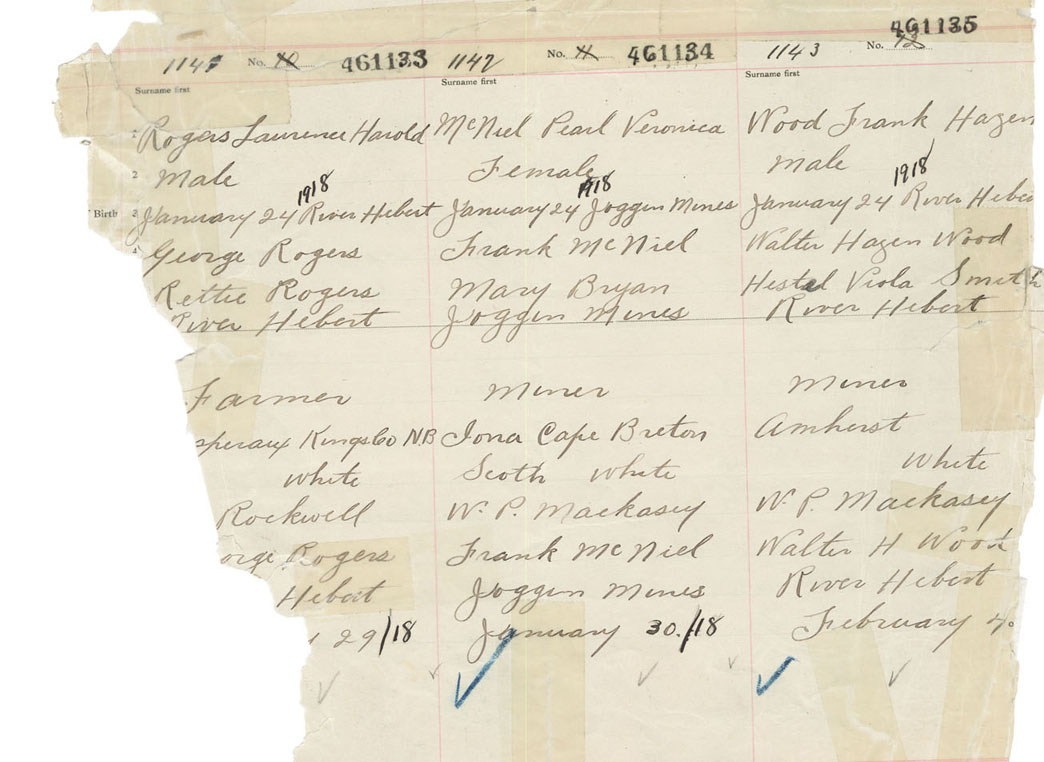 461135
1141 No. 10 461133 1142 No. 11 461134 1143 No. 12
Surname first Surname first Surname first
1 Rogers Laurence Harold McNiel Pearl Veronica Wood Frank Hazen
2 Male Female Male
1918 1918 1918
Birth 3 January 24 River Hebert January 24 Joggin Mines January 24 River Heber
4 George Rogers Frank McNiel Walter Hazen Wood
Rettie Rogers Mary Bryan Viola Smith
River Hebert Joggin Mines River Hebert
Farmer Miner Miner
speraux Kings Co NB Iona Cape Breton Amherst
White Scoth White White
Rockwell W. P. Mackasey W. P. Mackasey
orge Rogers Frank McNiel Walter H Wood
Hebert Joggin Mines River Hebert
29/18 January 30./18 February 4.